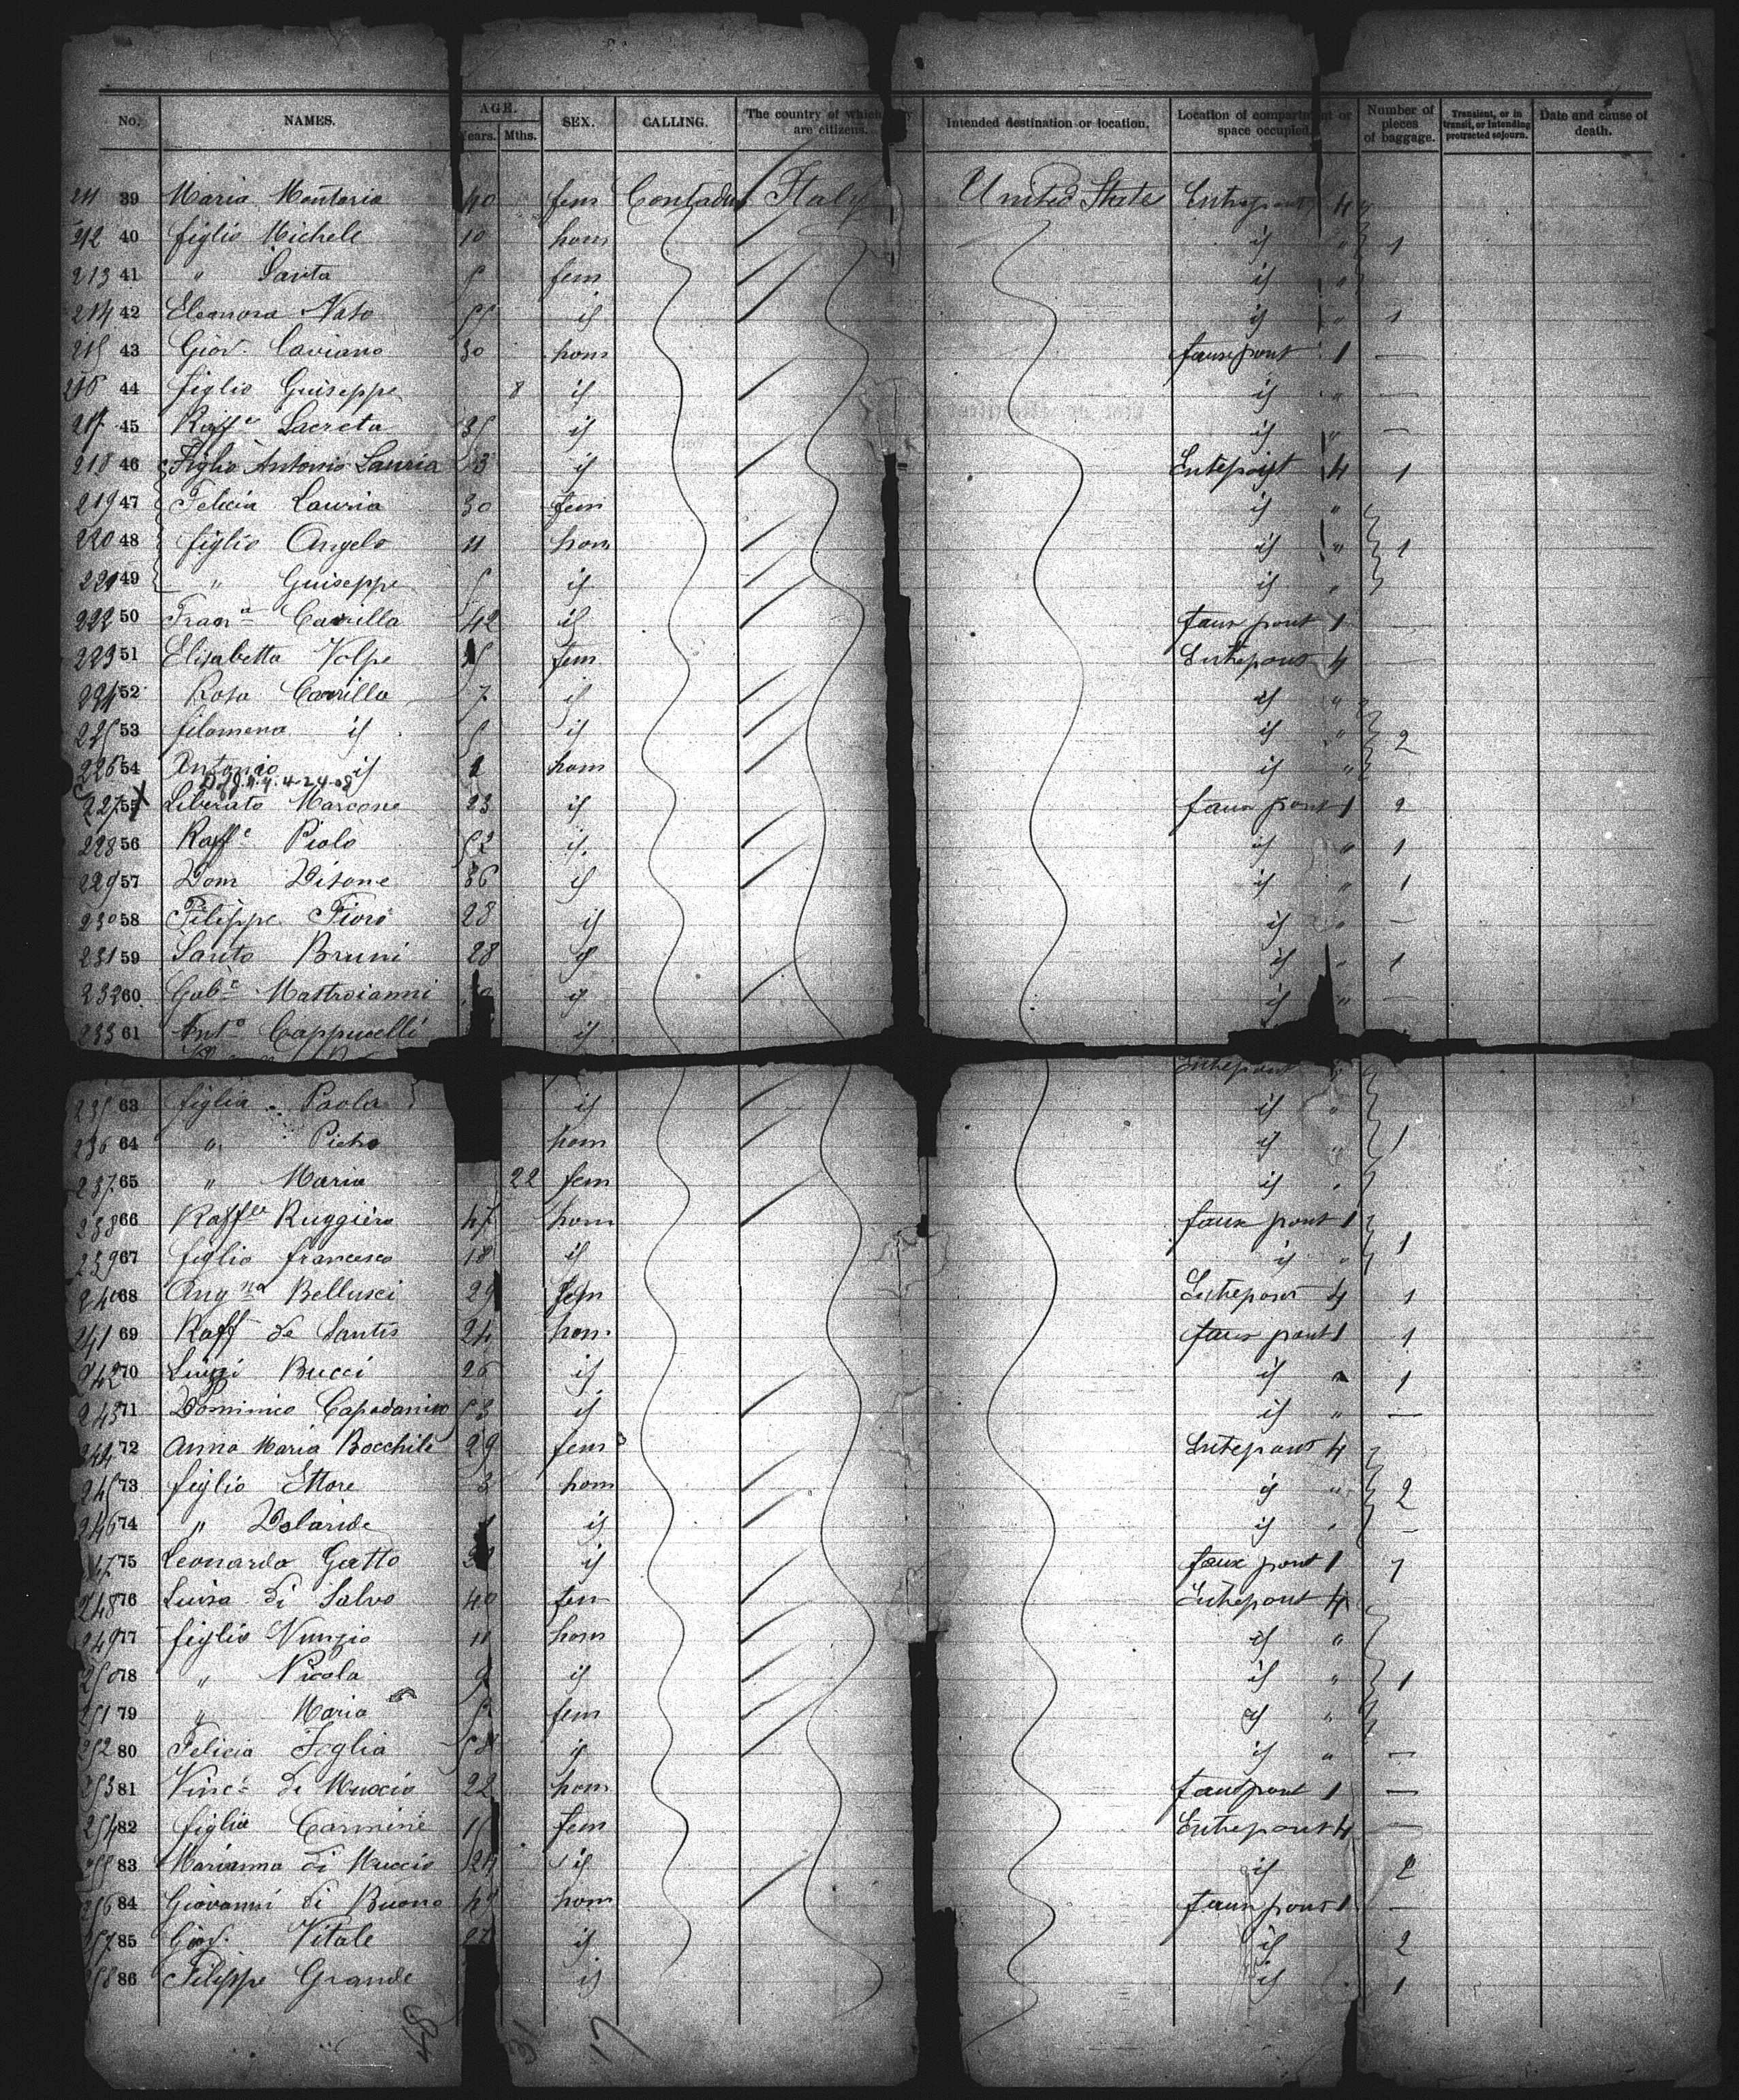 No. NAMES. AGE. Years. Mths. SEX. CALLING. The country of which are citizens. Intended destination or location. Location of compartment or space occupied. Number of pieces of baggage. Transient, or in transit, or intending protracted sojourn. Date and cause of death.
211 39 Maria Montoria 40 fem Contadin Italy United State Entrepont 4 "
212 40 figlio Michele 10 hom id " 1
213 41 " Santa 9 fem id "
214 42 Eleanora Naso 55 id id " 1
215 43 Giov. Caviano 30 hom faux pont 1 —
216 44 figlio Guiseppe 8 id id " —
217 45 Raffe Lacreta 35 id id " —
218 46 Figlio Antonio Lauria 3 id Entepont 4 1
219 47 Felicia Lauria 30 fem id "
220 48 figlio Angelo 11 hom id " 1
221 49 " Guiseppe 5 id id "
222 50 Frana Carrilla 42 id faux pont 1 —
223 51 Elisabetta Volpe fem Entrepont 4 —
224 52 Rosa Carrilla 7 id id "
225 53 filomena id 5 id id " 2
226 54 Antonio id hom id "
4-24-08
227 55 X Liberato Marcone 23 id faux pont 1 2
228 56 Raffe Piolo 52 id id " 1
229 57 Dom Disone 36 id id " 1
230 58 Filippe Fiore 28 id id " —
231 59 Santo Bruni 28 id id " 1
232 60 Gabe Mastroianni id id " —
233 61 Anto Cappucelli id
Entepont "
235 63 figlia Paola id id "
236 64 " Pietro hom id " 1
237 65 " Maria 22 fem id "
238 66 Raffle Ruggiero 47 hom faux pont 1
239 67 figlio francesco 18 id id " 1
240 68 Angna Bellusci 29 fem Entepont 4 1
241 69 Raff de Santis 24 hom faux pont 1 1
242 70 Luigi Bucci 26 id id " 1
243 71 Dominico Capodanno 53 id id " —
244 72 Anna Maria Bocchile 29 fem Entepont 4
245 73 figlio Ettore 3 hom id " 2
246 74 " Dolaride id id " —
75 Leonardo Gatto id faux pont 1 1
248 76 Luisa di Salvo 40 fem Entepont 4
249 77 figlio Nunzio 11 hom id "
250 78 " Nicola 9 id id " 1
251 79 " Maria 5 fem id "
252 80 Felicia Foglia 58 id id " —
253 81 Vince di Muccio 22 hom faux pont 1 —
254 82 figlia Carmine fem Entrepont 4 —
255 83 Marianna di Muccio 24 id id 2
256 84 Giovanni di Buono hom faux pont 1 —
257 85 Giov. Vitale 27 id id 2
258 86 Filippe Grande id id 1
31 17